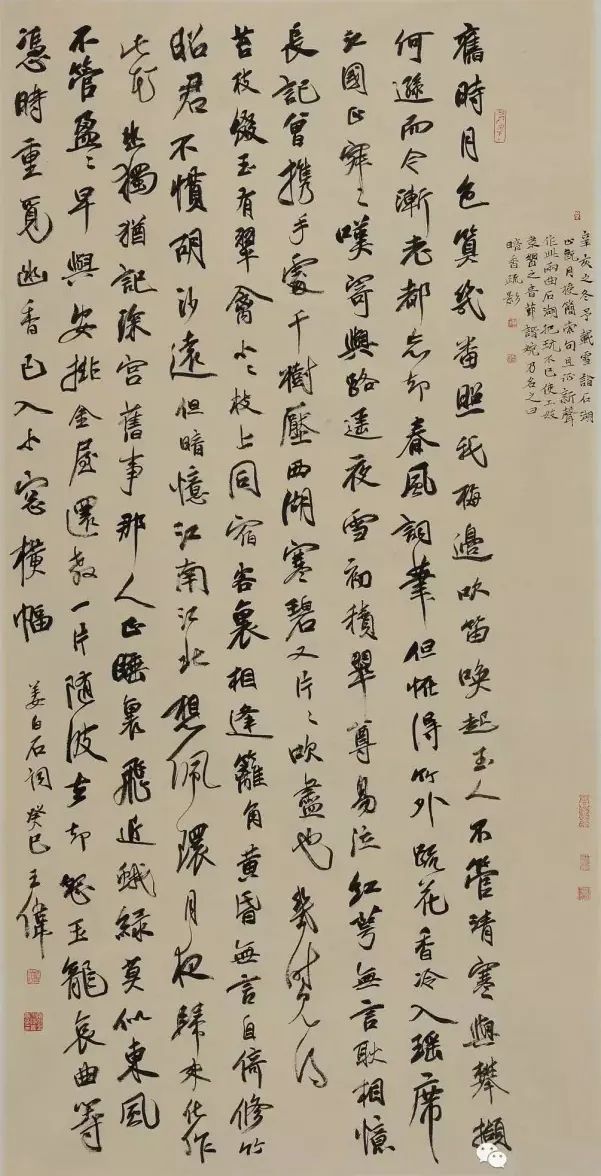 辛亥之冬予載雪詣石湖
止既月授簡索句且徵新聲
作此兩曲石湖把玩不已使工妓
隸習之音節諧婉乃名之曰
暗香疏影
舊時月色算幾番照我梅邊吹笛喚起玉人不管清寒與攀擷
何遜而今漸老都忘却春風詞筆但恠得竹外疏花香冷入瑶席
江國正寂〻嘆寄與路遥夜雪初積翠尊易泣紅萼無言耿相憶
長記曾携手處千樹壓西湖寒碧又片〻吹盡也幾時見得
苔枝綴玉有翠禽小〻枝上同宿客裏相逢籬角黄昏無言自倚修竹
昭君不慣胡沙遠但暗憶江南江北想佩環月夜歸來化作
此花幽獨猶記深宫舊事那人正睡裏飛近蛾緑莫似東風
不管盈〻早與安排金屋還教一片隨波去却怨玉龍哀曲等
恁時重覓幽香已入小窗横幅
姜白石詞癸巳王偉